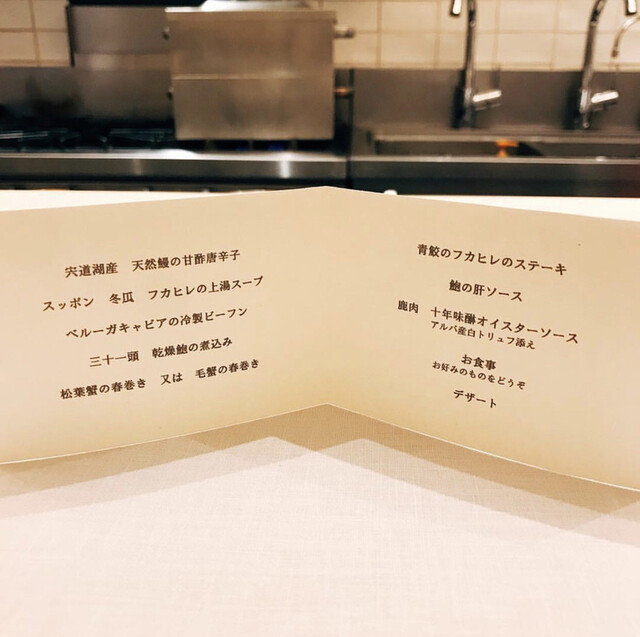 宍道湖産　天然鰻の甘酢唐辛子
スッポン　冬瓜　フカヒレの上湯スープ
ベルーガキャビアの冷製ビーフン
三十一頭　乾燥鮑の煮込み
松葉蟹の春巻き　又は　毛蟹の春巻き
青鮫のフカヒレのステーキ
鮑の肝ソース
鹿肉　十年味醂オイスターソース
アルバ産白トリュフ添え
お食事
お好みのものをどうぞ
デザート